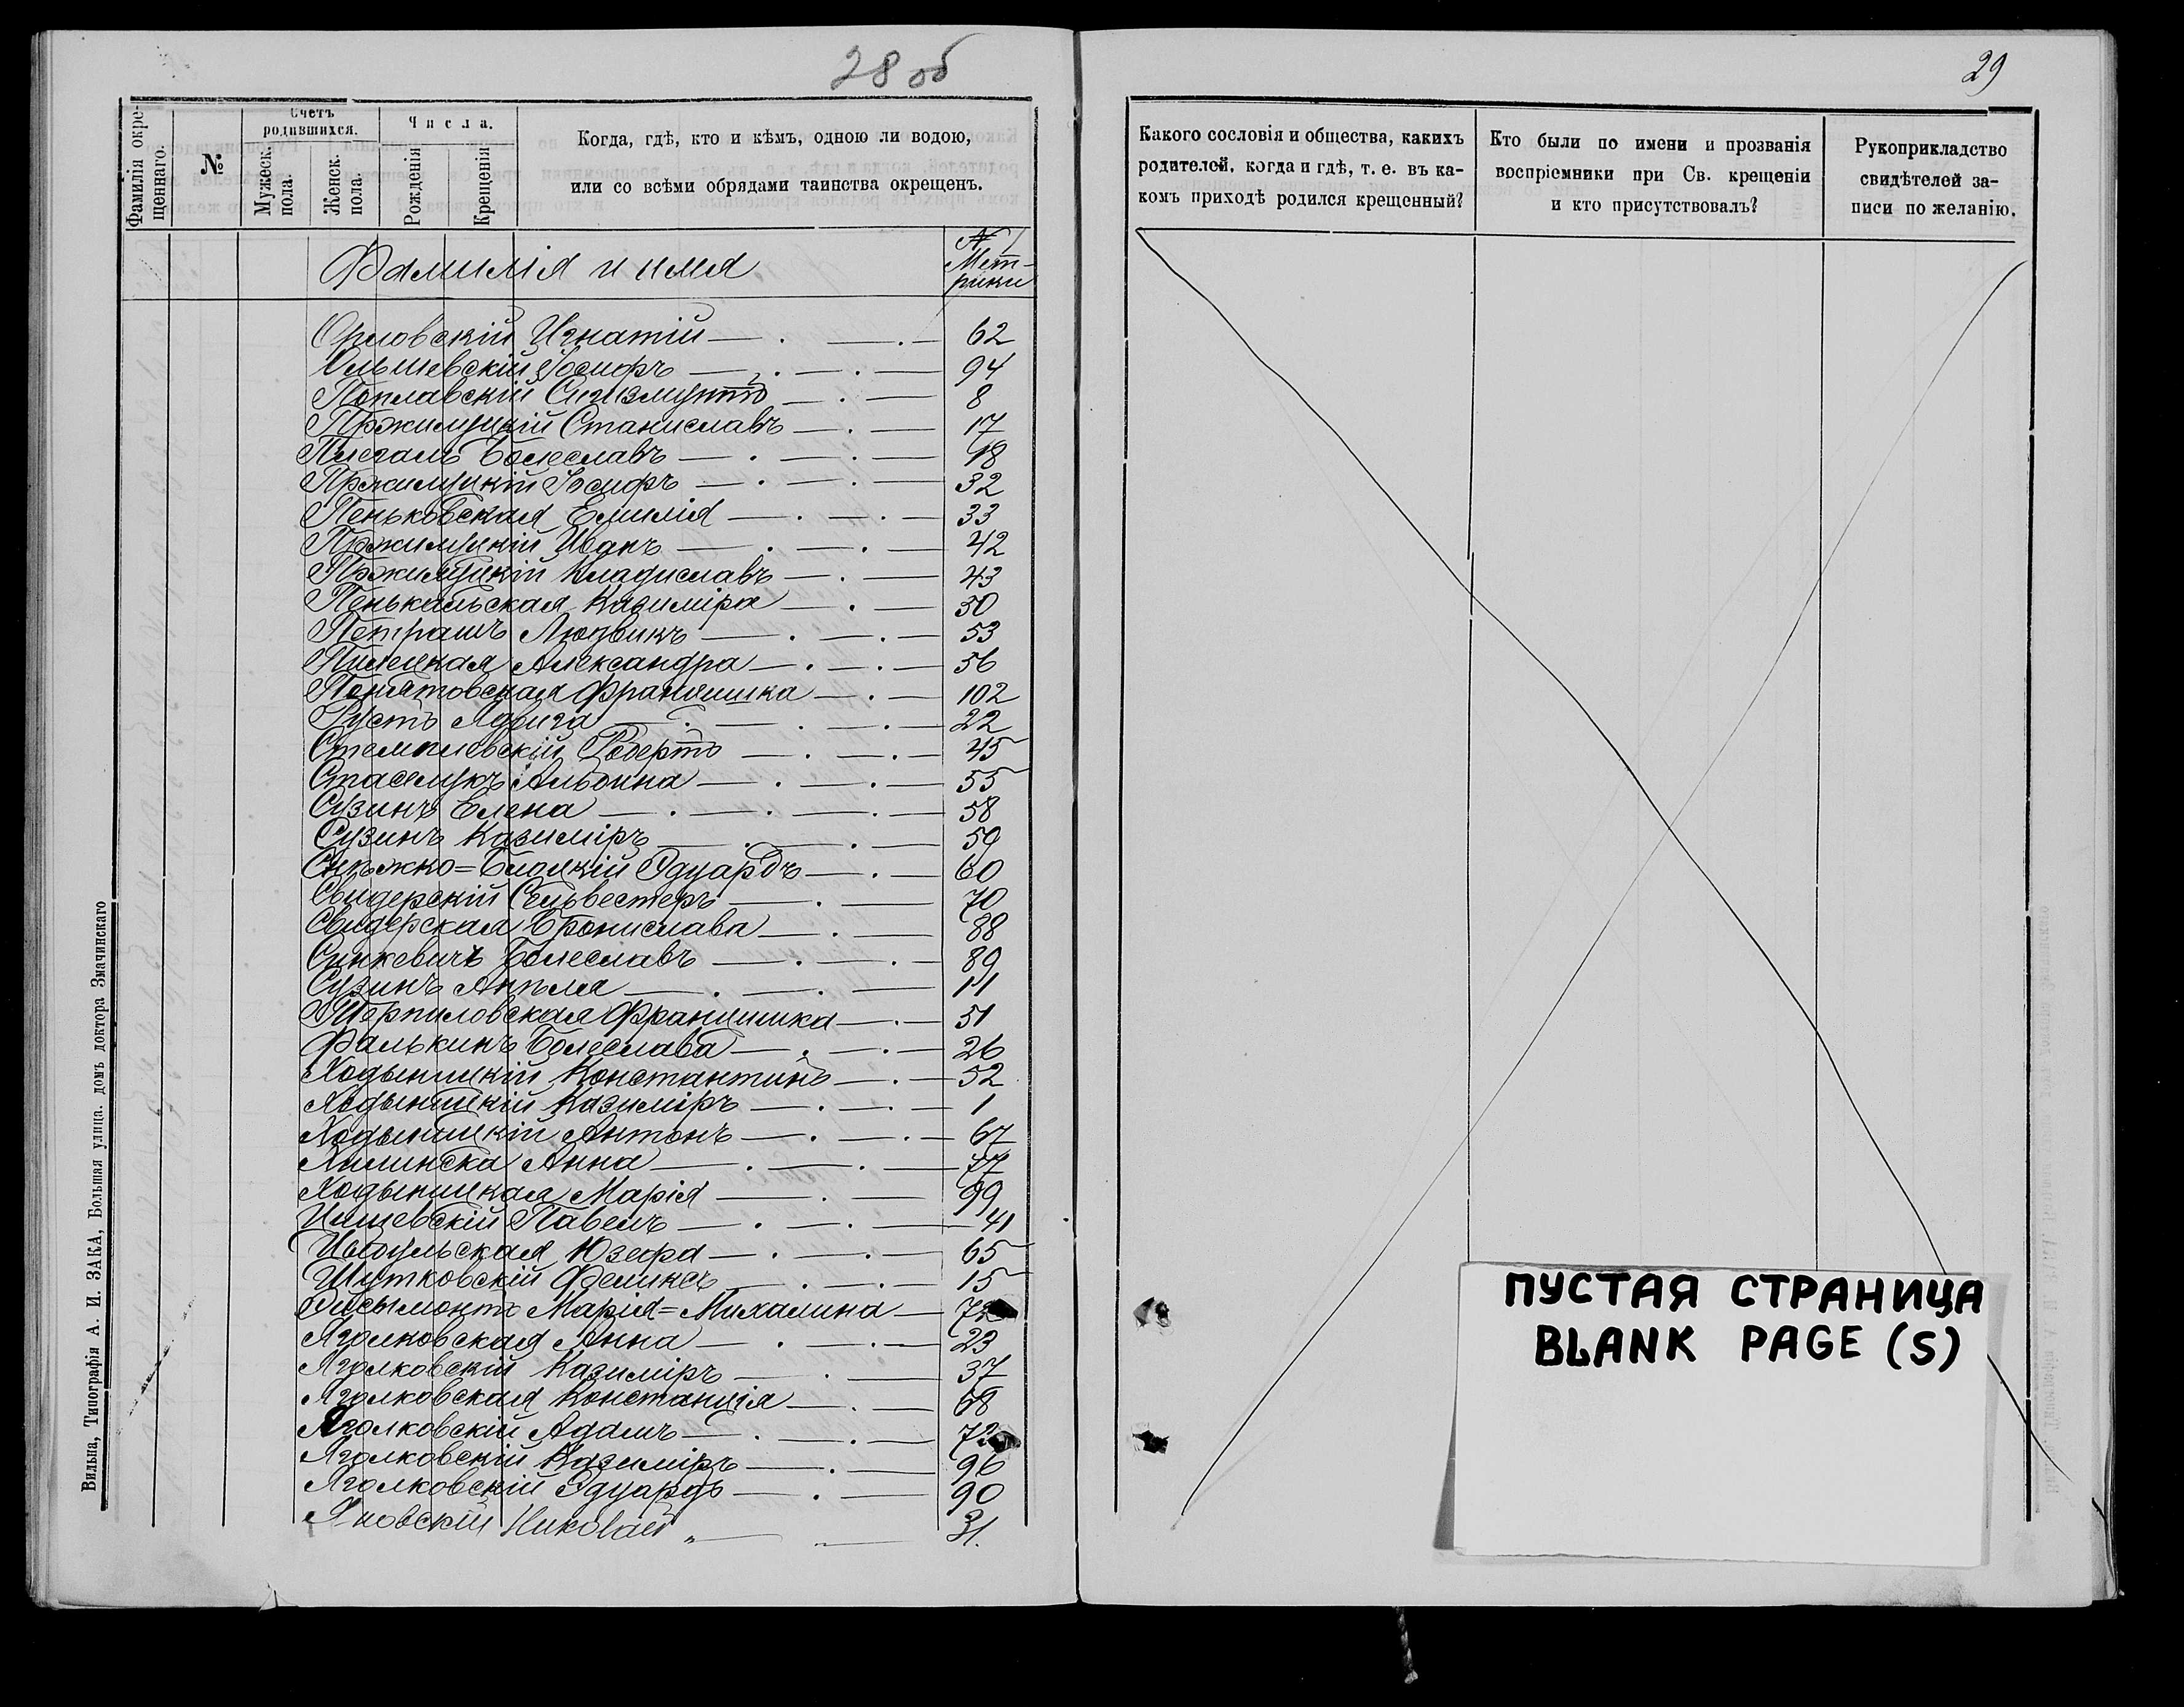 28 об
Фамилія окре-
щеннаго.
№
Счетъ
родившихся.
Мужеск.
пола.
Женск.
пола.
Числа.
Рожденія
Крещенія
Когда, гдѣ, кто и кѣмъ, одною ли водою,
или со всѣми обрядами таинства окрещенъ.
Фамилія и имя
№
Мет-
рики
Орловскій Игнатій 62
Ольшевскій Іосифъ 94
Поплавскій Сигизмунтъ 8
Пржимуцкій Станиславъ 17
Болеславъ 18
Пржимуцкій Іосифъ 32
Пеньковская Емилія 33
Пржимуцкій Иванъ 42
Пржимуцкій Владиславъ 43
Казиміра 50
Петрашъ Людвикъ 53
Пилецкая Александра 56
Понятовская Францишка 102
Русть Ядвига 22
Стемпковскій Робертъ 45
Стасюкъ Альбина 55
Сузинъ Елена 58
Сузинъ Казиміръ 59
Снѣжко=Блоцкій Эдуардъ 60
Свидерскій Сельвестеръ 70
Свидерская Бронислава 88
Синкевичъ Болеславъ 89
Сузинъ 111
Терпиловская Францишка 51
Фалькинъ Болеслава 26
Ходыницкій Константинъ 52
Ходыницкій Казиміръ 1
Ходыницкій Антонъ 67
Хилинска Анна 77
Ходыницкая Марія 99
Павелъ 41
Юзефа 65
Шутковскій Феликсъ 15
Эйсымонтъ Марія=Михалина
Яголковская Анна 23
Яголковскій Казиміръ 37
Яголковская Констанція 68
Яголковскій Адамъ
Яголковскій Казиміръ 96
Яголковскій Эдуардъ 90
Яновскій Николай 31.
Вильна, Типографія А. И. ЗАКА, Большая улица. домъ доктора Змачинскаго
29
Какого сословія и общества, какихъ
родителей, когда и гдѣ, т. е. въ ка-
комъ приходѣ родился крещенный?
Кто были по имени и прозванія
воспріемники при Св. крещеніи
и кто присутствовалъ?
Рукоприкладство
свидѣтелей за-
писи по желанію.
ПУСТАЯ СТРАНИЦА
BLANK PAGE (S)